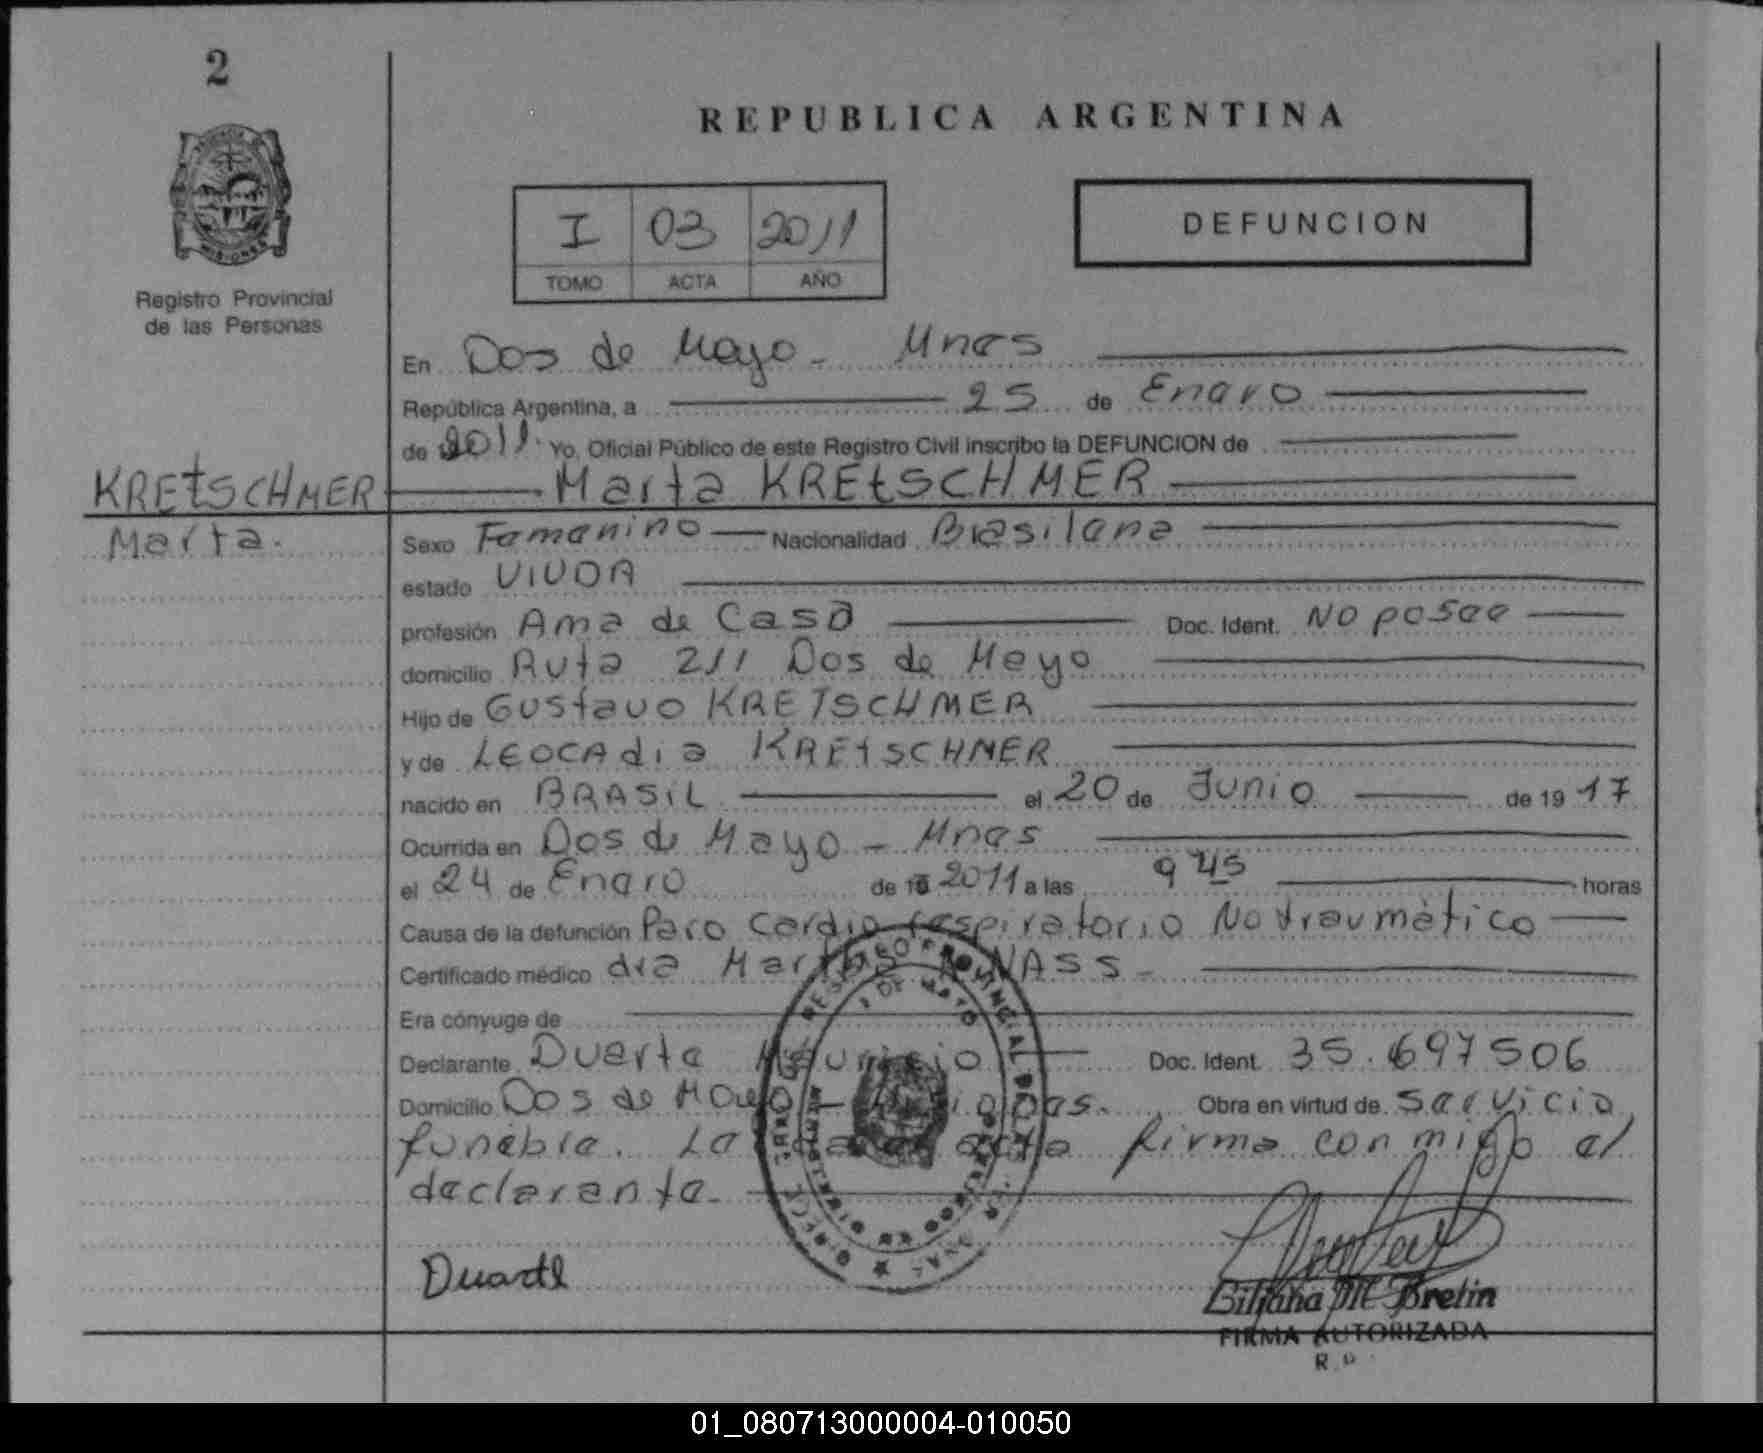 2
REPUBLICA ARGENTINA
I 03 2011
TOMO ACTA AÑO
DEFUNCION
Registro Provincial
de las Personas
En Dos de Mayo - Mnes
República Argentina, a 25 de Enero
de 2011. Yo, Oficial Público de este Registro Civil inscribo la DEFUNCION de
KREtSCHMER Marta KREtSCHMER
Marta.
Sexo Femenino Nacionalidad Brasilena
estado VIUDA
profesión Ama de Casa Doc. Ident. No posee
domicilio Ruta 211 Dos de Mayo
Hijo de Gustavo KRETSCHMER
y de LEOCAdia KREtSCHMER
nacido en BRASiL el 20 de Junio de 19 17
Ocurrida en Dos de Mayo - Mnes
el 24 de Enero de 2011 a las 9 45 horas
Causa de la defunción Paro Cardio respiratorio No traumático
Certificado médico dra
Era cónyuge de
Declarante Duarte Doc. Ident. 35.697506
Domicilio Dos de Mayo - Misiones. Obra en virtud de servicio
funebre. La firma conmigo el
declarante.
Duarte
Liliana M Bretin
FIRMA AUTORIZADA
R.P
01_080713000004-010050